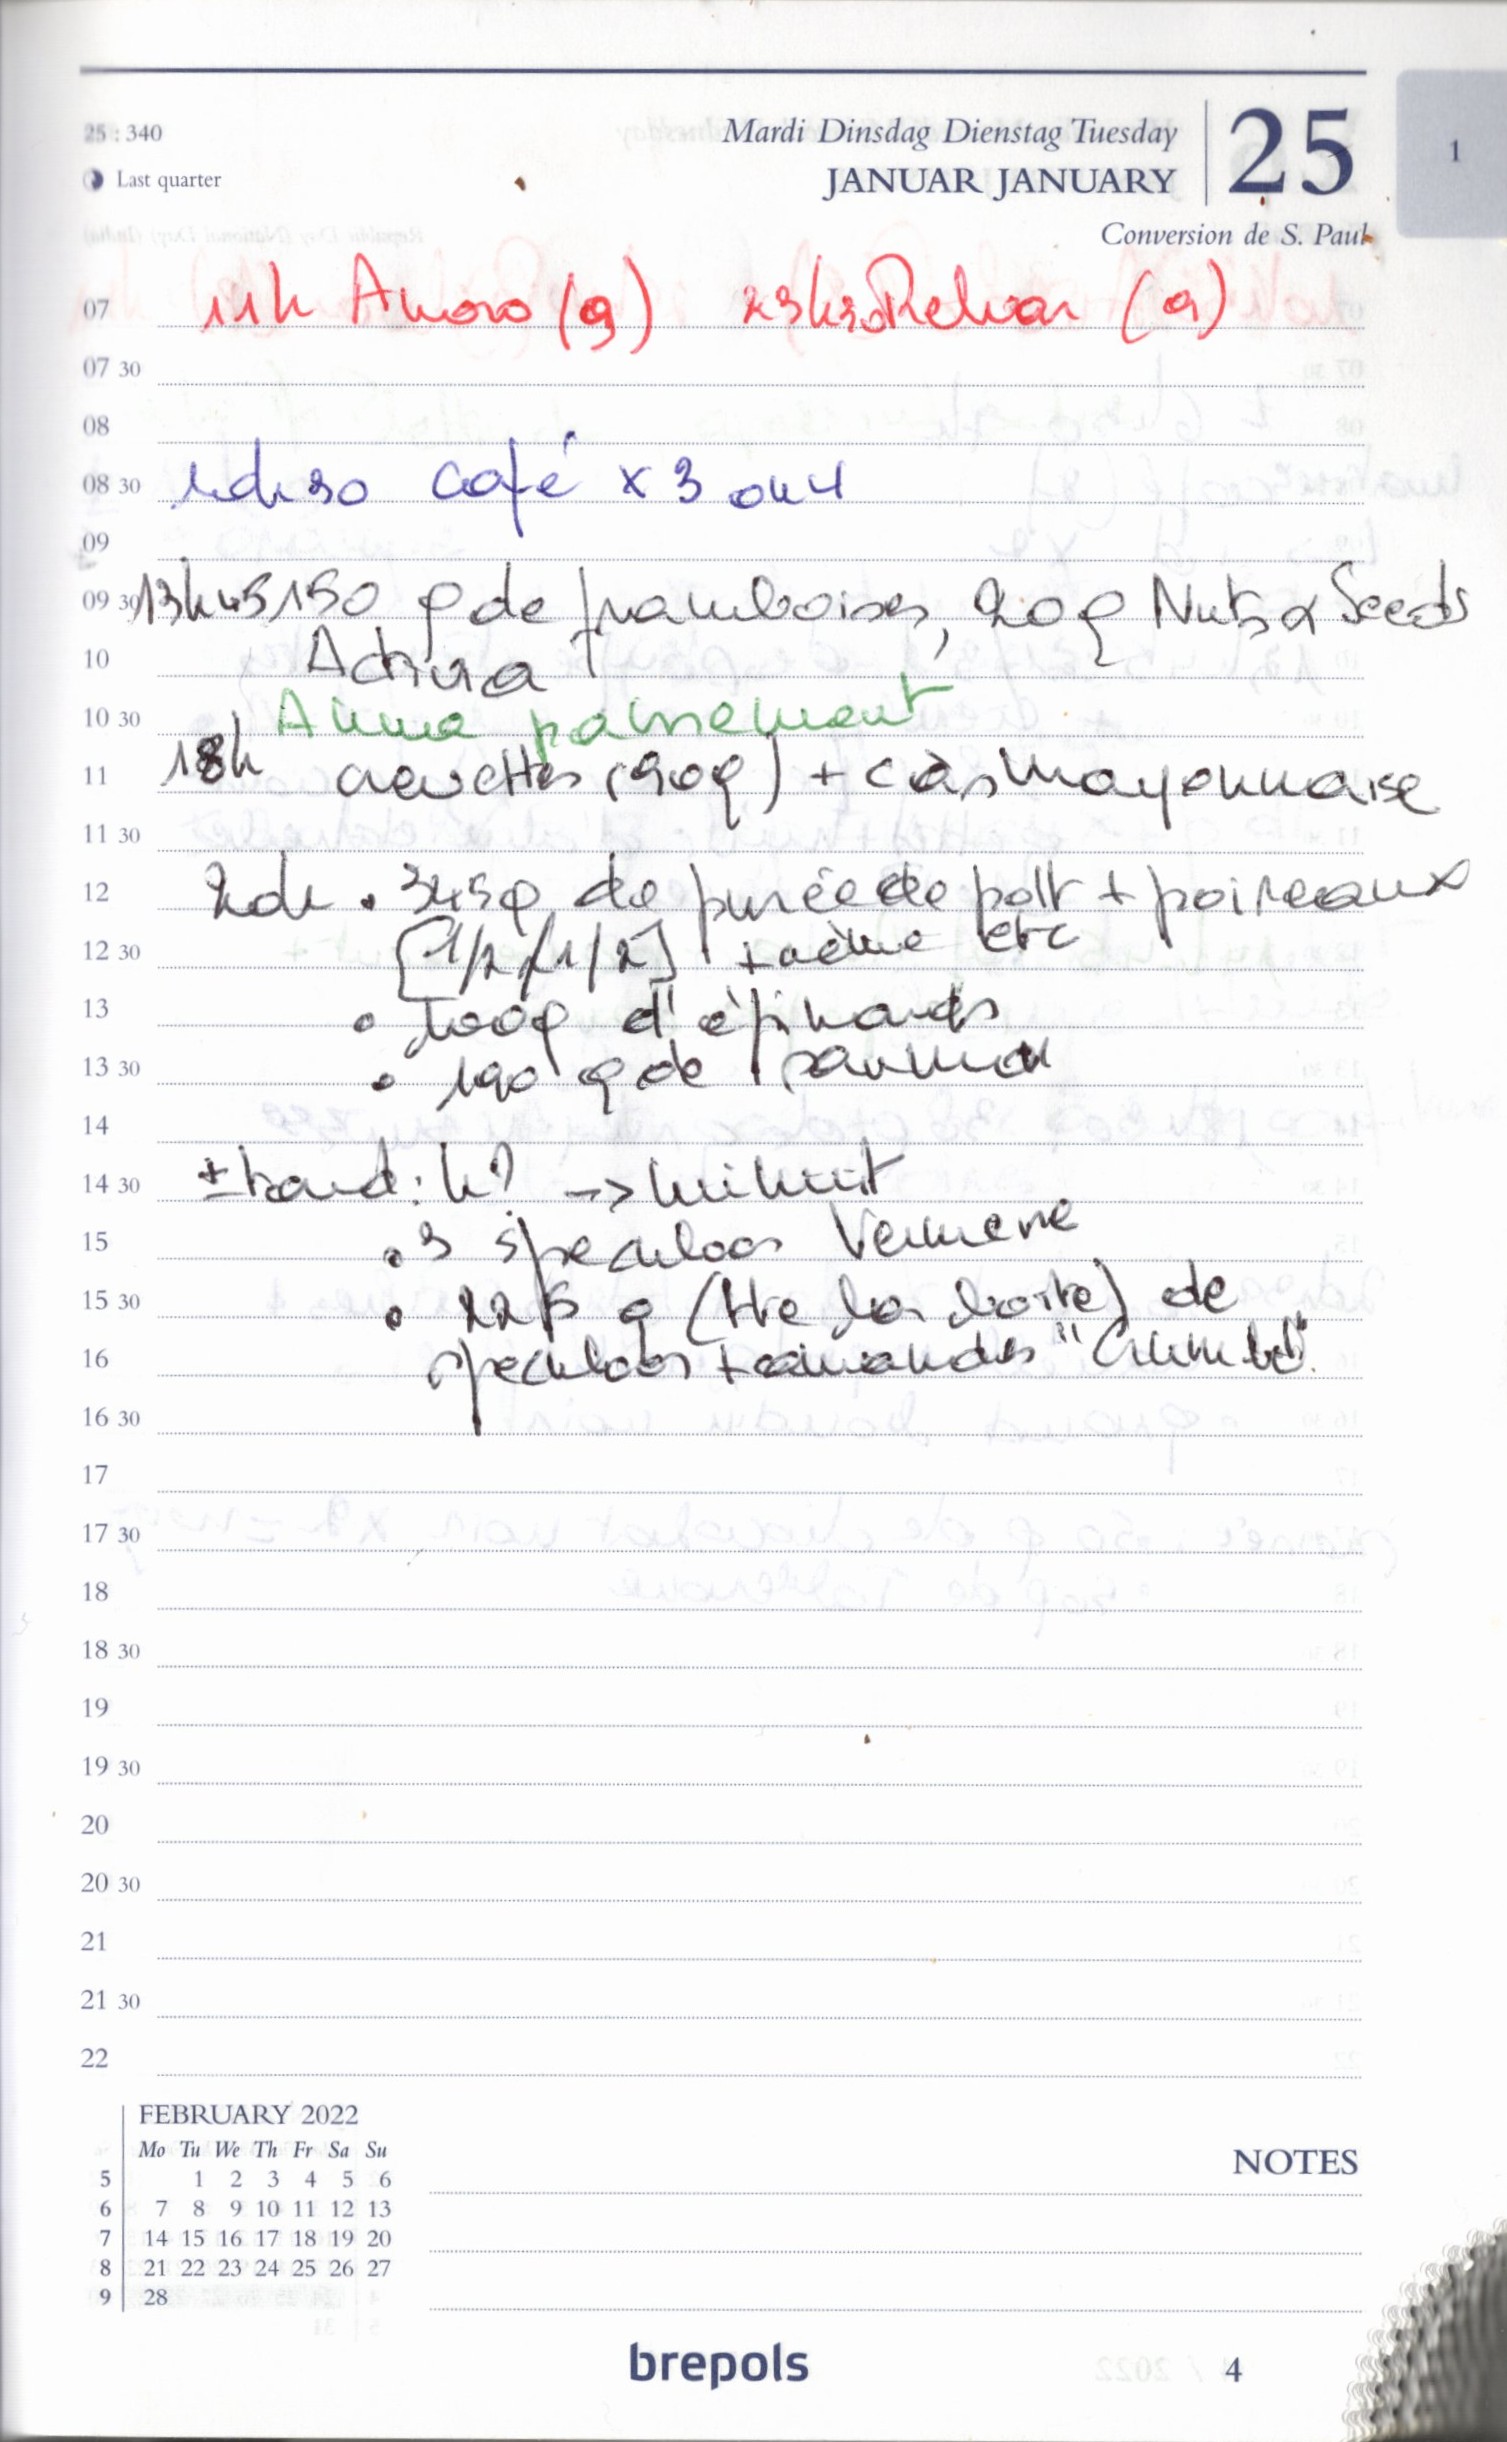 25 : 340
Mardi Dinsdag Dienstag Tuesday
Last quarter
JANUAR JANUARY
25
1
Conversion de S. Paul
07 11h (9) 23h30 (9)
07 30
08
08 30 café x 3 ou 4
09
09 30 13h45 150 g de framboises, 20g Nuts & Seeds
10
10 30 Anne pansement
11 18h crevettes (90g) + càs mayonnaise
11 30
12 345g de purée de pdt + poireaux
12 30 [1/2 / 1/2] + crème etc
13 • 100g d'épinards
13 30 • 190 g de
14
14 30 ± tard : h? -> minuit
15 • 3 speculoos
15 30 • 225 g (tte la boîte) de
16 speculoos + amandes
16 30
17
17 30
18
18 30
19
19 30
20
20 30
21
21 30
22
FEBRUARY 2022
Mo Tu We Th Fr Sa Su
5 1 2 3 4 5 6
6 7 8 9 10 11 12 13
7 14 15 16 17 18 19 20
8 21 22 23 24 25 26 27
9 28
NOTES
brepols
4